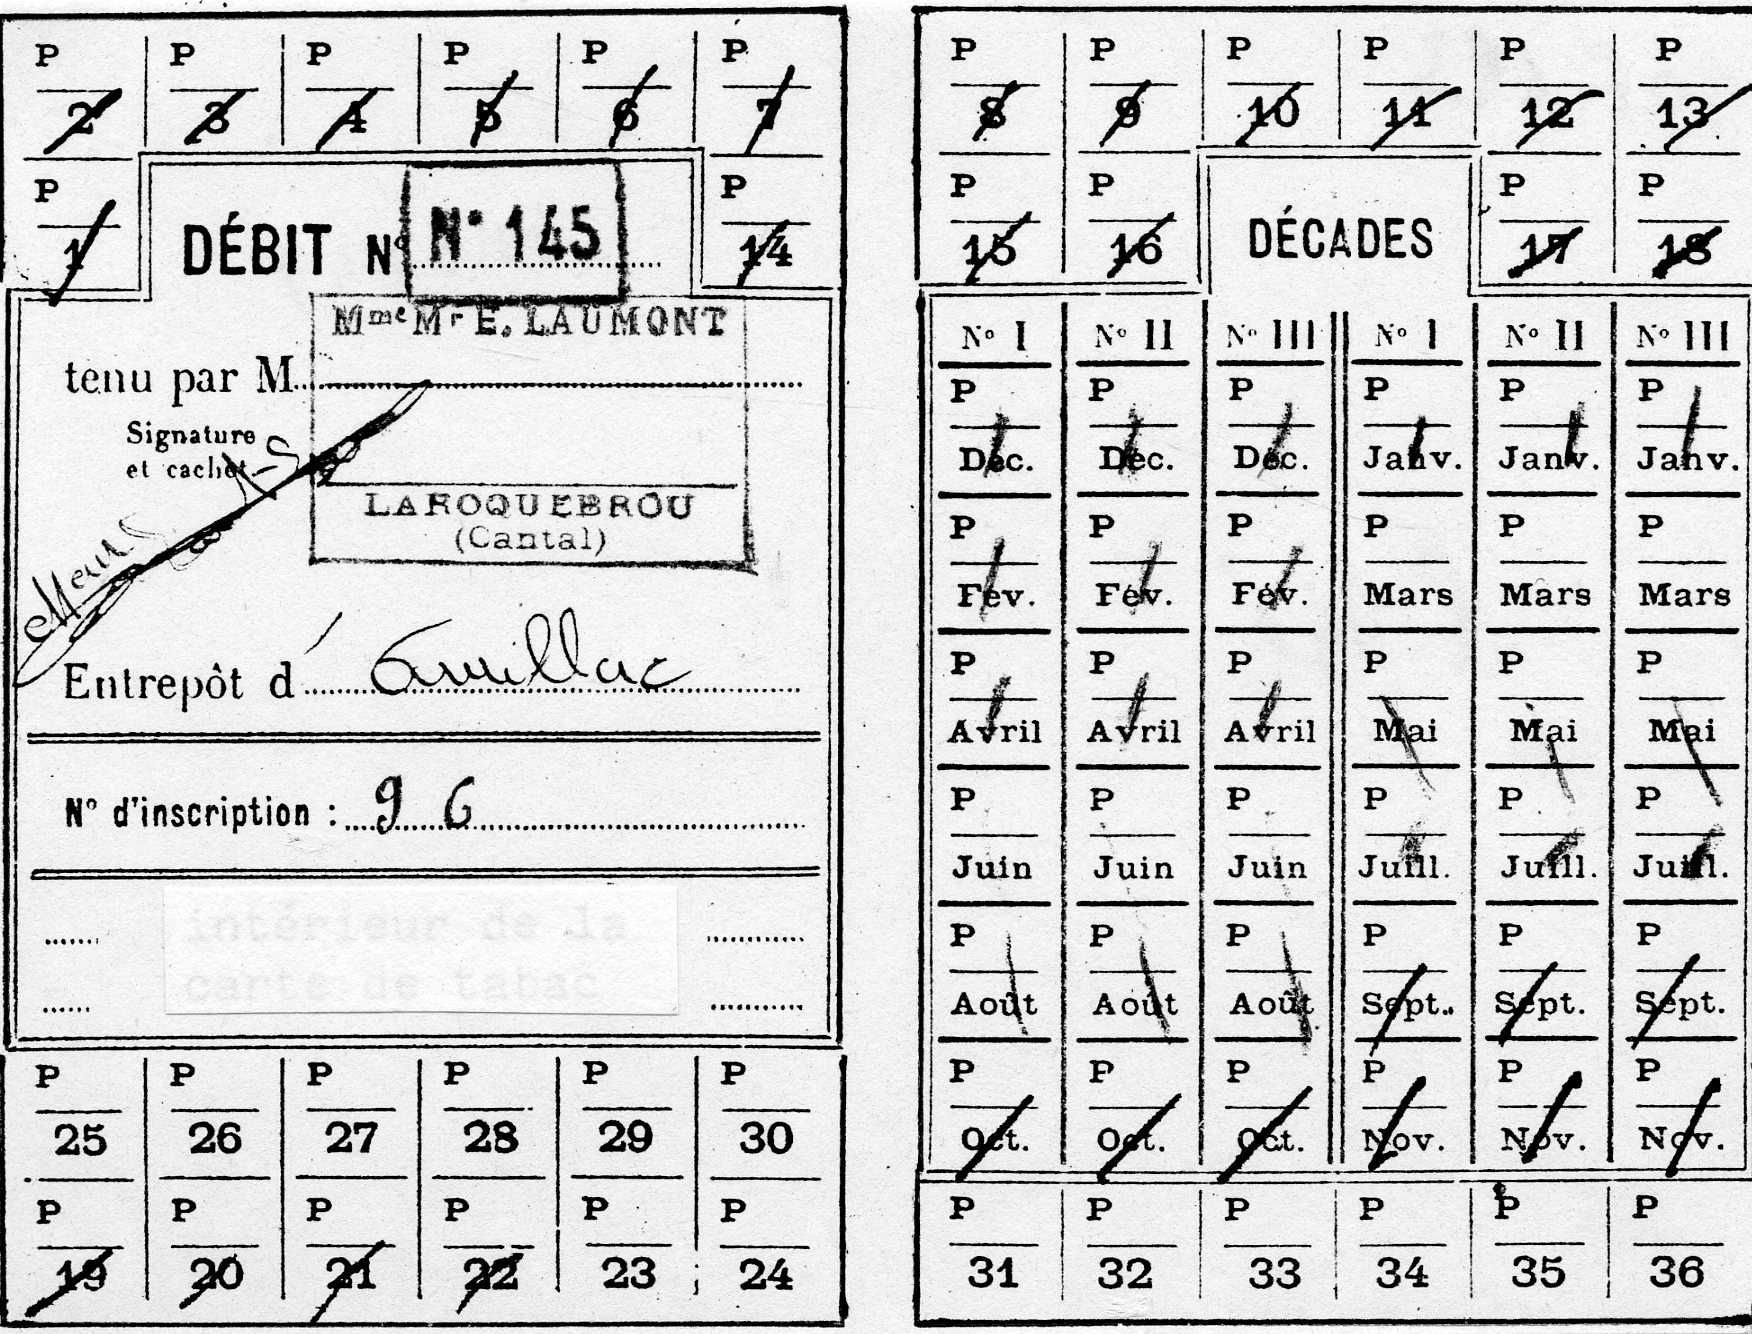 P P P P P P
2 3 4 5 6 7
P P
1 14
DÉBIT N° N° 145
Mme Mr E. LAUMONT
tenu par M
Signature
et cachet
LAROQUEBROU
(Cantal)
Entrepôt d' Aurillac
N° d'inscription : 96
intérieur de la
carte de tabac
P P P P P P
25 26 27 28 29 30
P P P P P P
19 20 21 22 23 24
P P P P P P
8 9 10 11 12 13
P P P P
15 16 17 18
DÉCADES
N° I N° II N° III N° I N° II N° III
P P P P P P
Déc. Déc. Déc. Janv. Janv. Janv.
P P P P P P
Fév. Fév. Fév. Mars Mars Mars
P P P P P P
Avril Avril Avril Mai Mai Mai
P P P P P P
Juin Juin Juin Juill. Juill. Juill.
P P P P P P
Août Août Août Sept. Sept. Sept.
P P P P P P
Oct. Oct. Oct. Nov. Nov. Nov.
P P P P P P
31 32 33 34 35 36